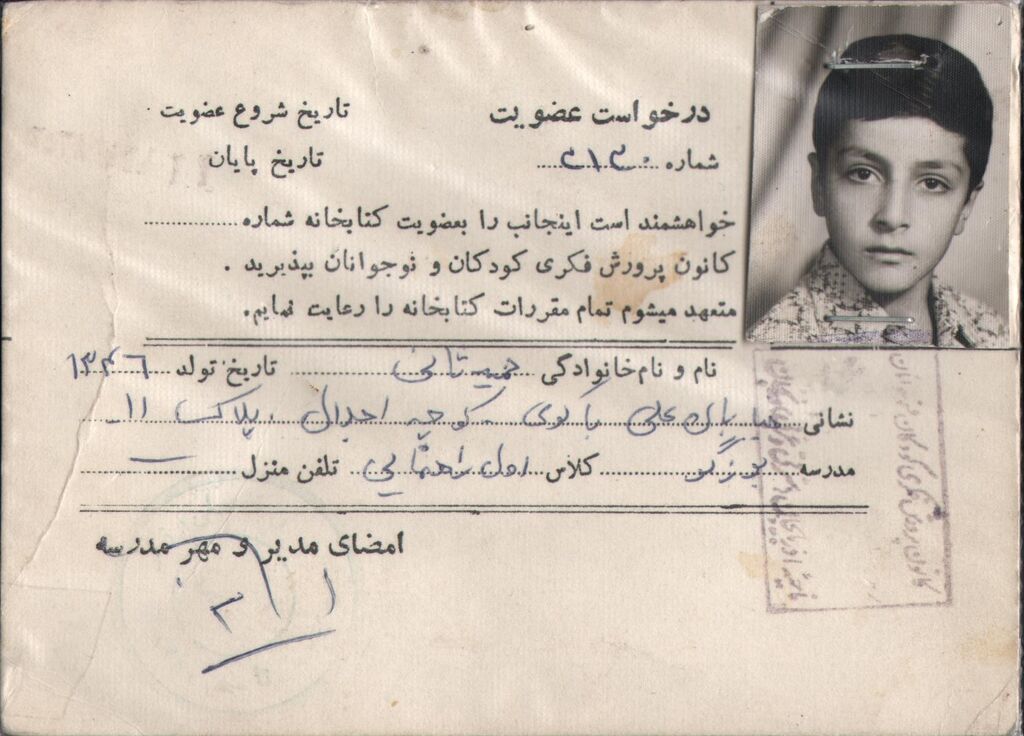 درخواست عضویت
تاریخ شروع عضویت
شماره ۲۱۳۰
تاریخ پایان
خواهشمند است اینجانب را بعضویت کتابخانه شماره
کانون پرورش فکری کودکان و نوجوانان بپذیرید .
متعهد میشوم تمام مقررات کتابخانه را رعایت نمایم.
نام و نام خانوادگی تاریخ تولد ۱۳۴۶
نشانی پلاک ۱۱
مدرسه کلاس اول راهنمایی تلفن منزل —
امضای مدیر و مهر مدرسه
کانون پرورش فکری کودکان و نوجوانان